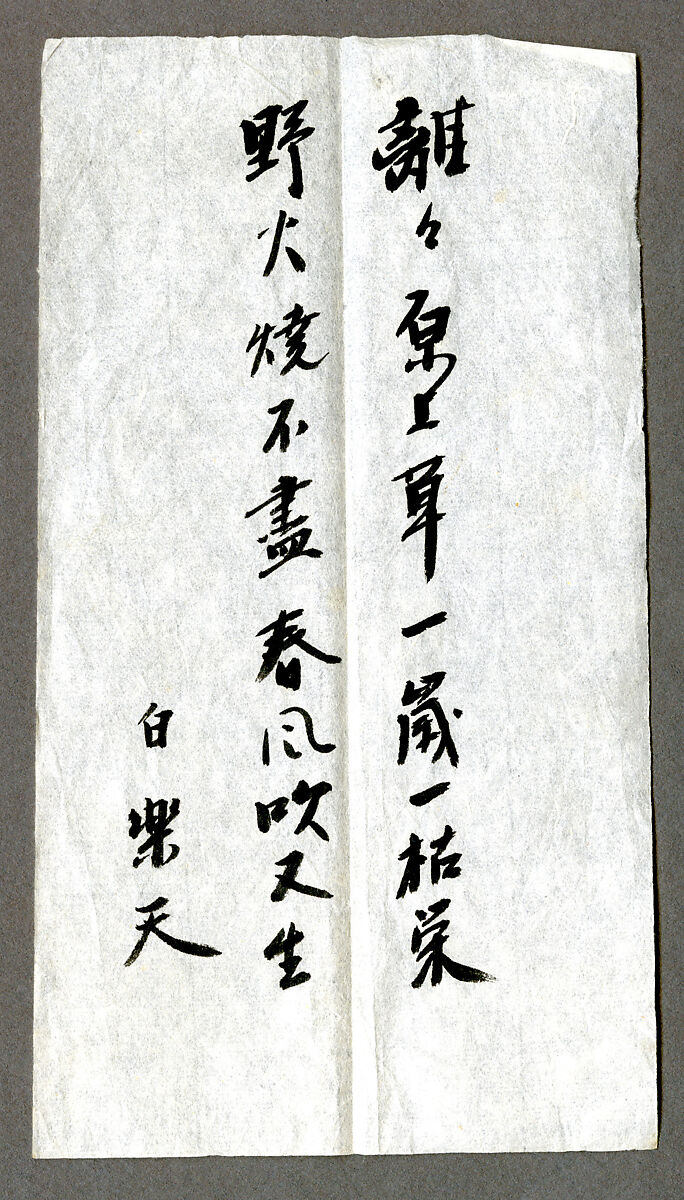 離々原上草一歳一枯栄
野火燒不盡春風吹又生
白樂天